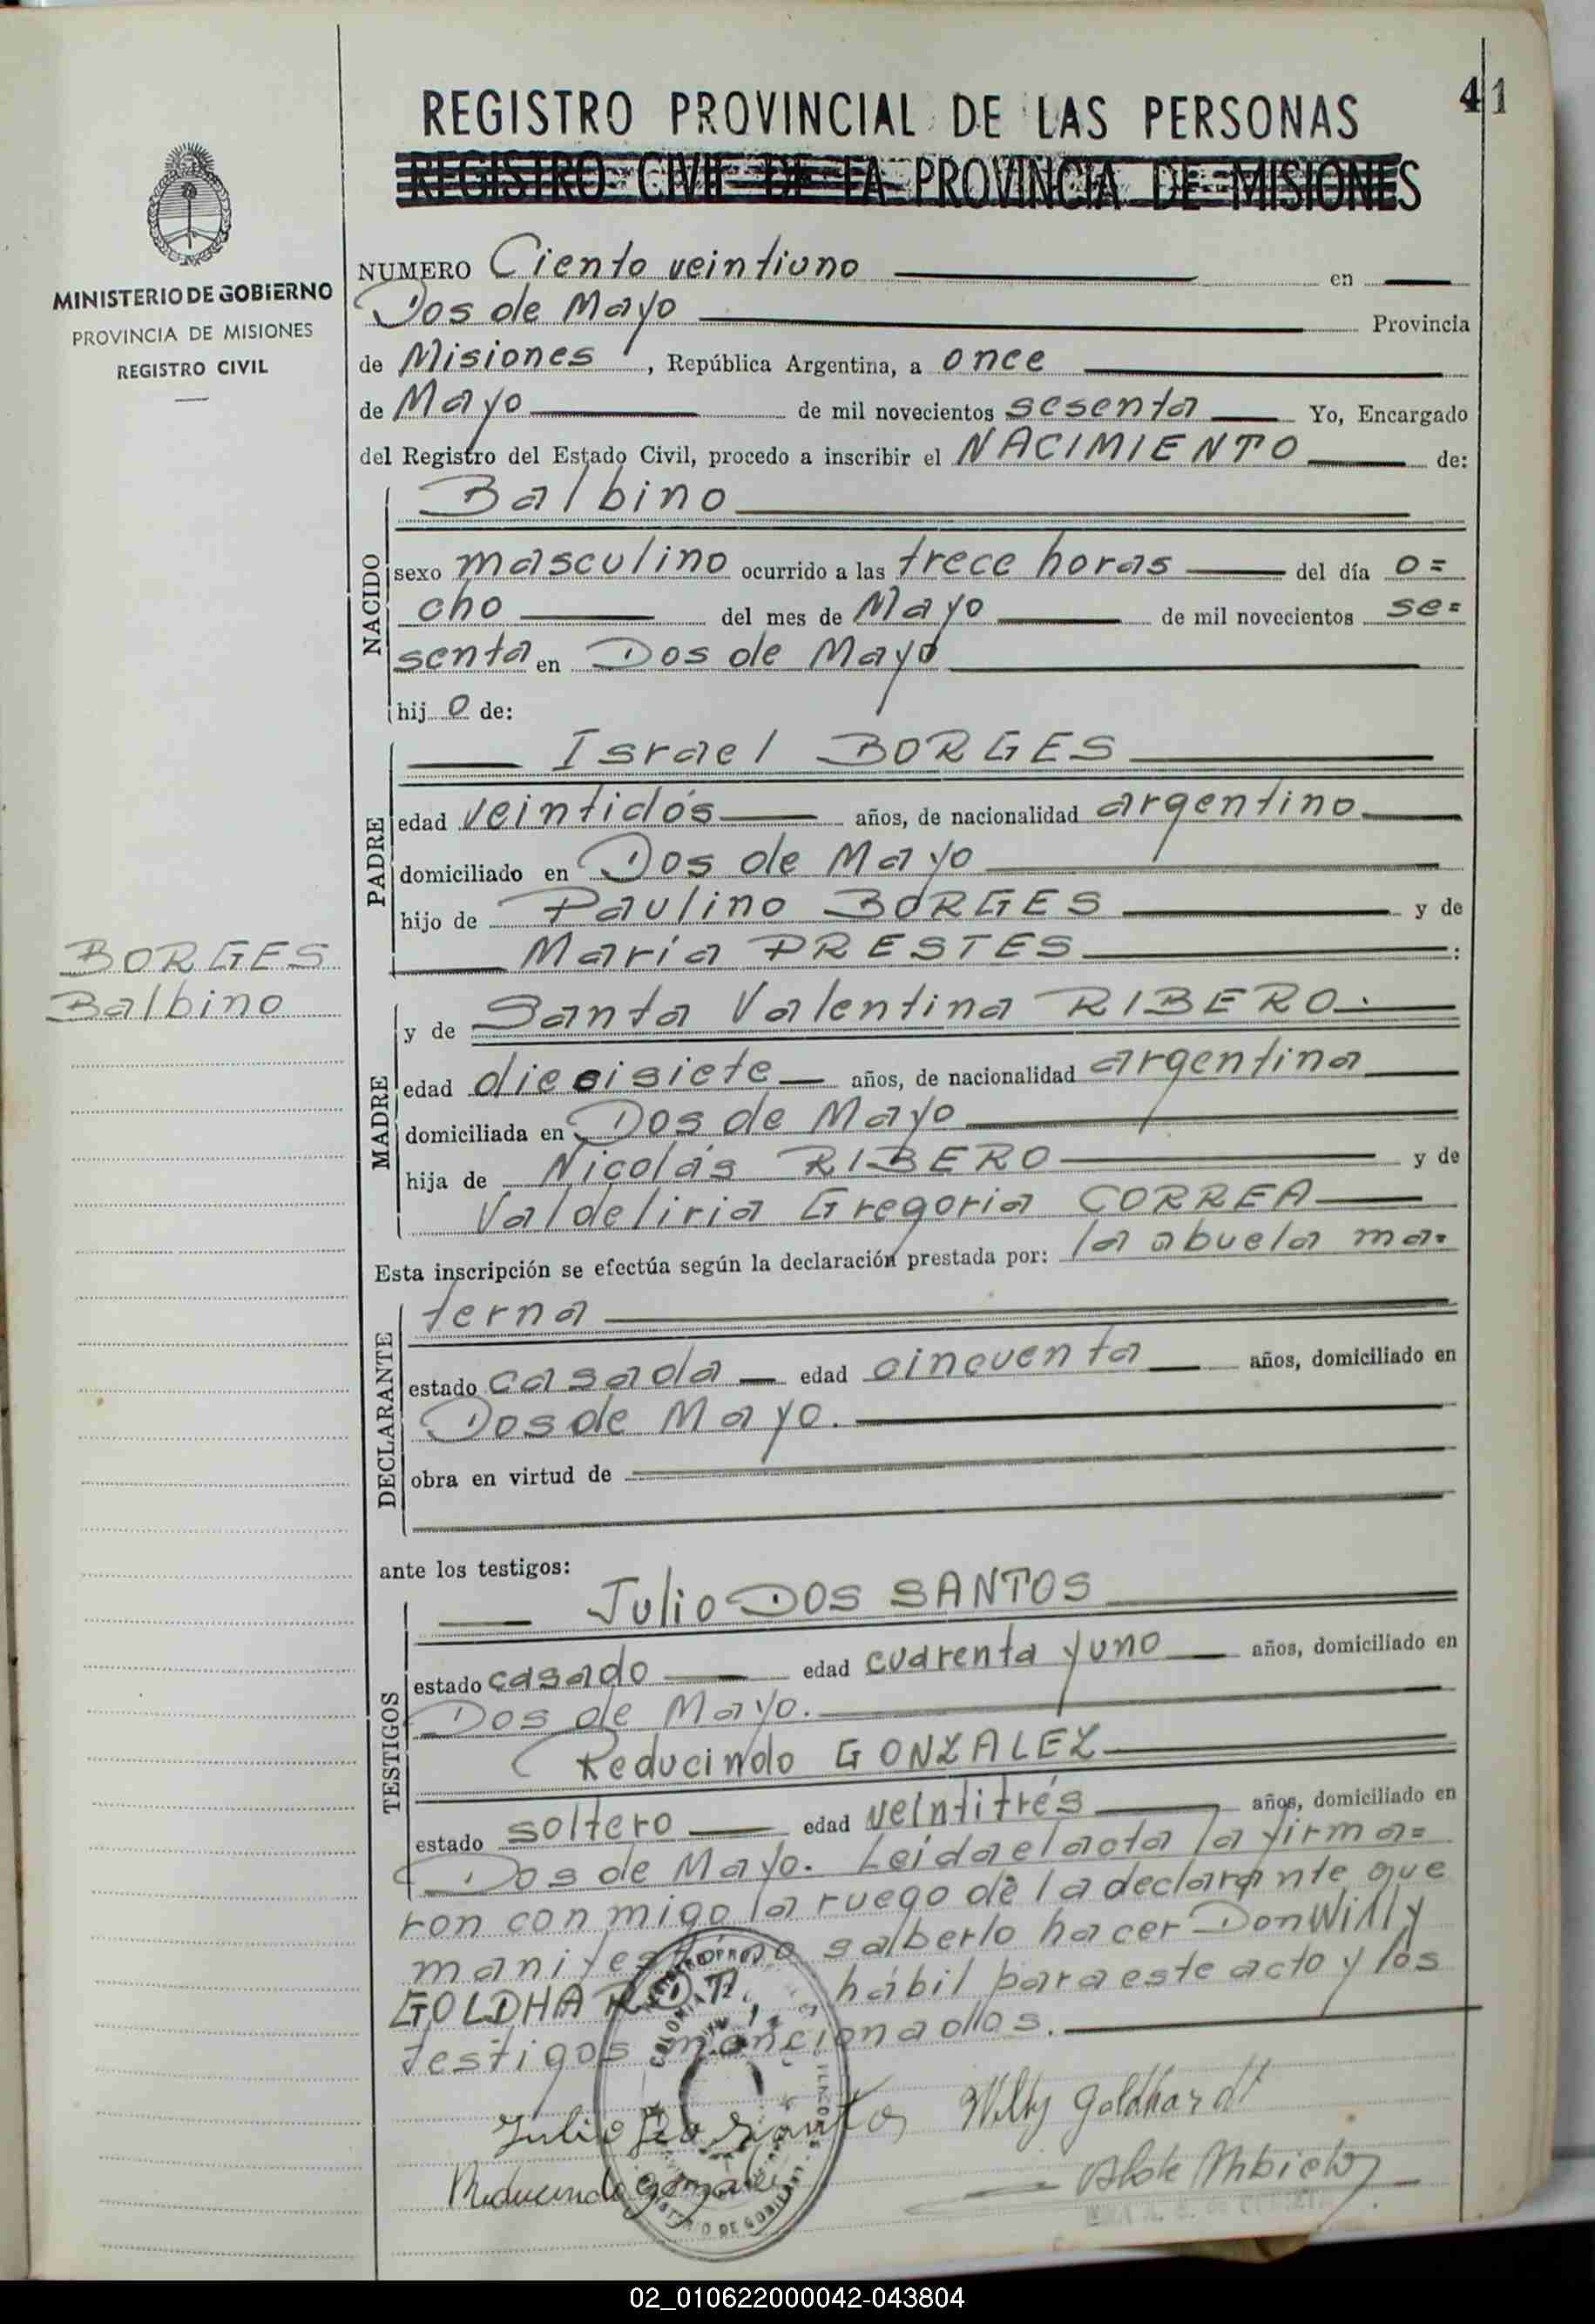 41
REGISTRO PROVINCIAL DE LAS PERSONAS
REGISTRO CIVIL DE LA PROVINCIA DE MISIONES
MINISTERIO DE GOBIERNO
PROVINCIA DE MISIONES
REGISTRO CIVIL
NUMERO Ciento veintiuno en
Dos de Mayo Provincia
de Misiones, República Argentina, a once
de Mayo de mil novecientos sesenta Yo, Encargado
del Registro del Estado Civil, procedo a inscribir el NACIMIENTO de:
NACIDO
Balbino
sexo masculino ocurrido a las trece horas del día o=
cho del mes de Mayo de mil novecientos se=
senta en Dos de Mayo
hijo de:
PADRE
Israel BORGES
edad veintidós años, de nacionalidad argentino
domiciliado en Dos de Mayo
hijo de Paulino BORGES y de
María PRESTES :
BORGES
Balbino
MADRE
y de Santa Valentina RIBERO.
edad diecisiete años, de nacionalidad argentina
domiciliada en Dos de Mayo
hija de Nicolás RIBERO y de
Valdeliria Gregoria CORREA
Esta inscripción se efectúa según la declaración prestada por: la abuela ma=
DECLARANTE
terna
estado casada edad cincuenta años, domiciliado en
Dos de Mayo.
obra en virtud de
ante los testigos:
TESTIGOS
Julio DOS SANTOS
estado casado edad cuarenta y uno años, domiciliado en
Dos de Mayo.
Reducindo GONZALEZ
estado soltero edad veintitrés años, domiciliado en
Dos de Mayo. Leída el acta la firma=
ron conmigo la ruego de la declarante que
manifestó no saberlo hacer Don Willy
GOLDHARDT, hábil para este acto y los
testigos mencionados.
Julio Dos Santos Willy Goldhardt
Reducindo Gonzalez
02_010622000042-043804